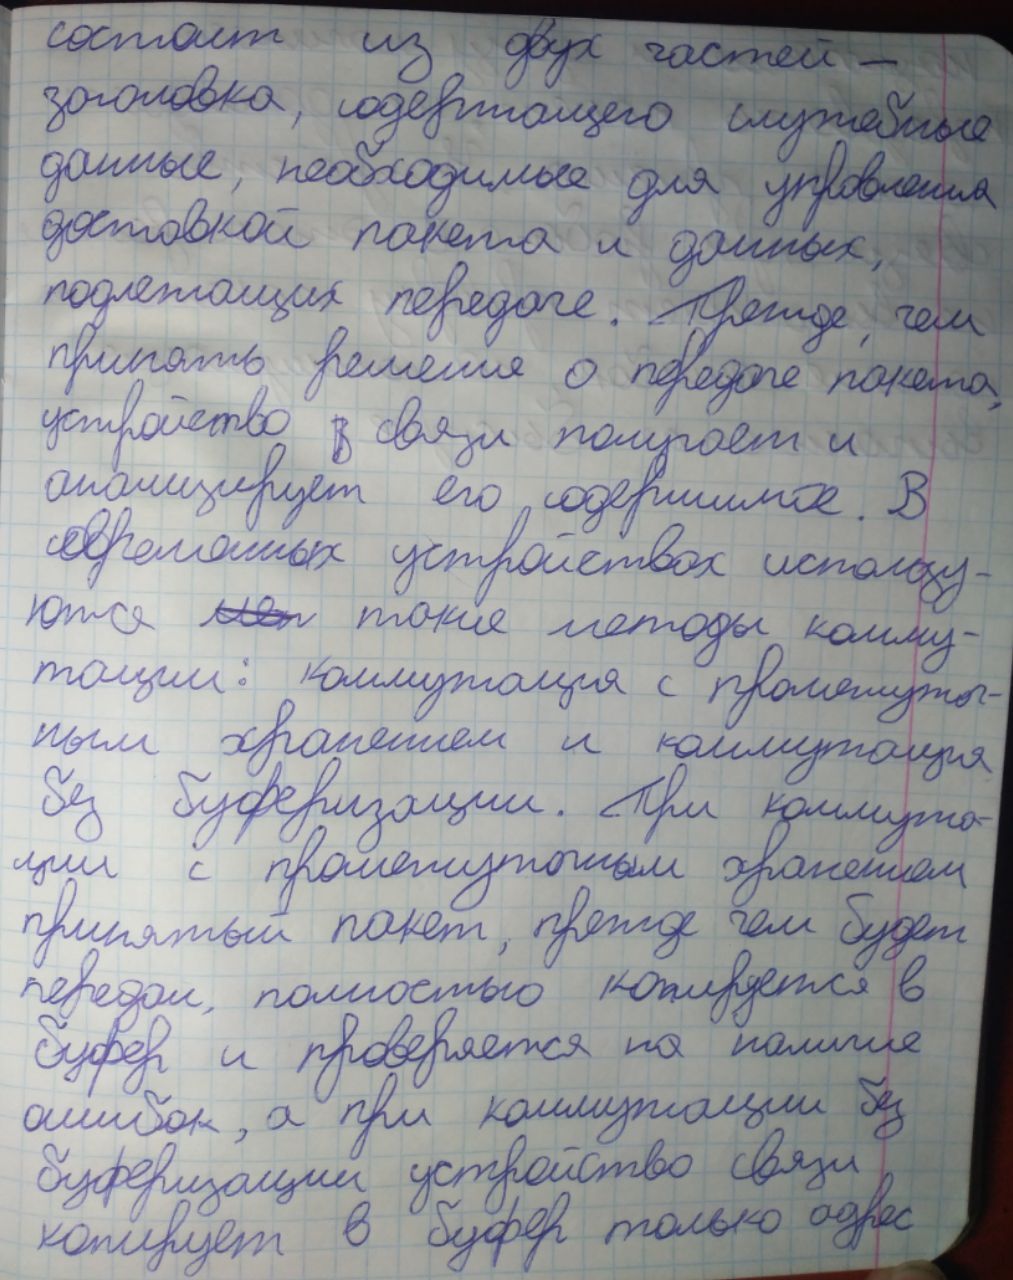 состоит из двух частей –
заголовка, содержащего служебные
данные, необходимые для управления
доставкой пакета и данных,
подлежащих передаче. Прежде, чем
принять решение о передаче пакета,
устройство в связи получает и
анализирует его содержимое. В
современных устройствах использу-
ются такие методы комму-
тации: коммутация с промежуточ-
ным хранением и коммутация
без буферизации. При коммута-
ции с промежуточным хранением
принятый пакет, прежде чем будет
передан, полностью копируется в
буфер и проверяется на наличие
ошибок, а при коммутации без
буферизации устройство связи
копирует в буфер только адрес